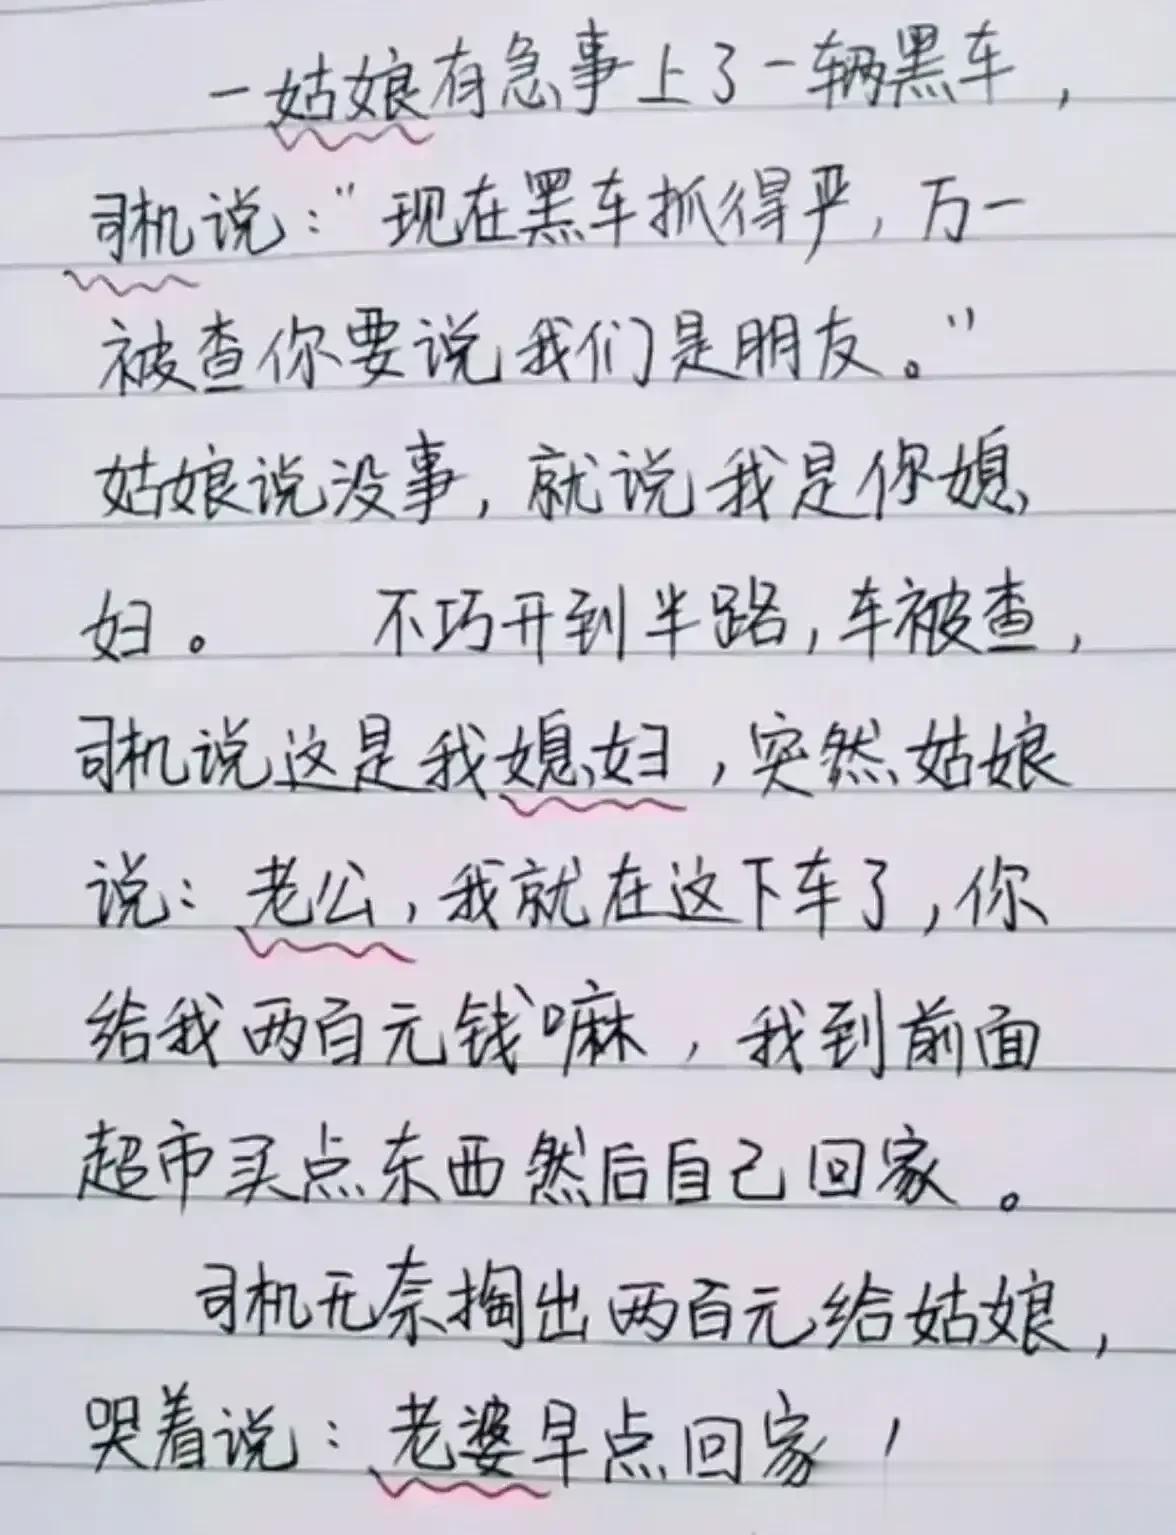 一姑娘有急事上了一辆黑车，
司机说："现在黑车抓得严，万一
被查你要说我们是朋友。"
姑娘说没事，就说我是你媳
妇。 不巧开到半路，车被查，
司机说这是我媳妇，突然姑娘
说：老公，我就在这下车了，你
给我两百元钱嘛，我到前面
超市买点东西然后自己回家。
司机无奈掏出两百元给姑娘，
哭着说：老婆早点回家！